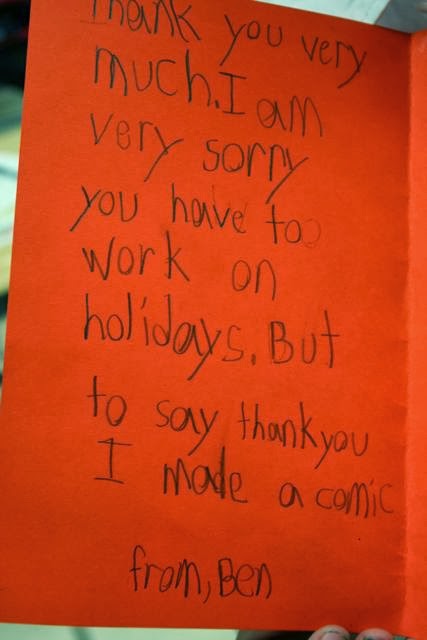 Thank you very
much. I am
very sorry
you have to
work on
holidays. But
to say thankyou
I made a comic
from, Ben